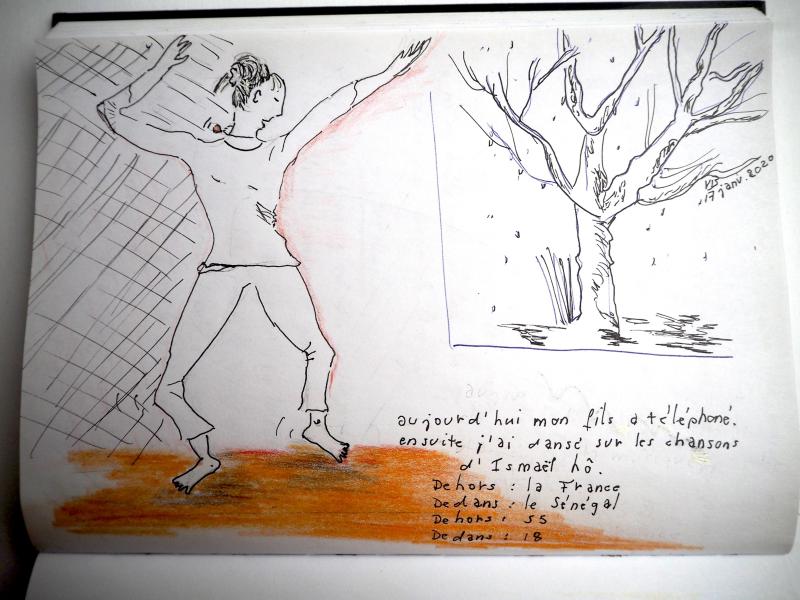 17 janv. 2020
aujourd'hui mon fils a téléphoné.
ensuite j'ai dansé sur les chansons
d'Ismaël hô.
Dehors : la France
Dedans : le Sénégal
Dehors : 55
Dedans : 18